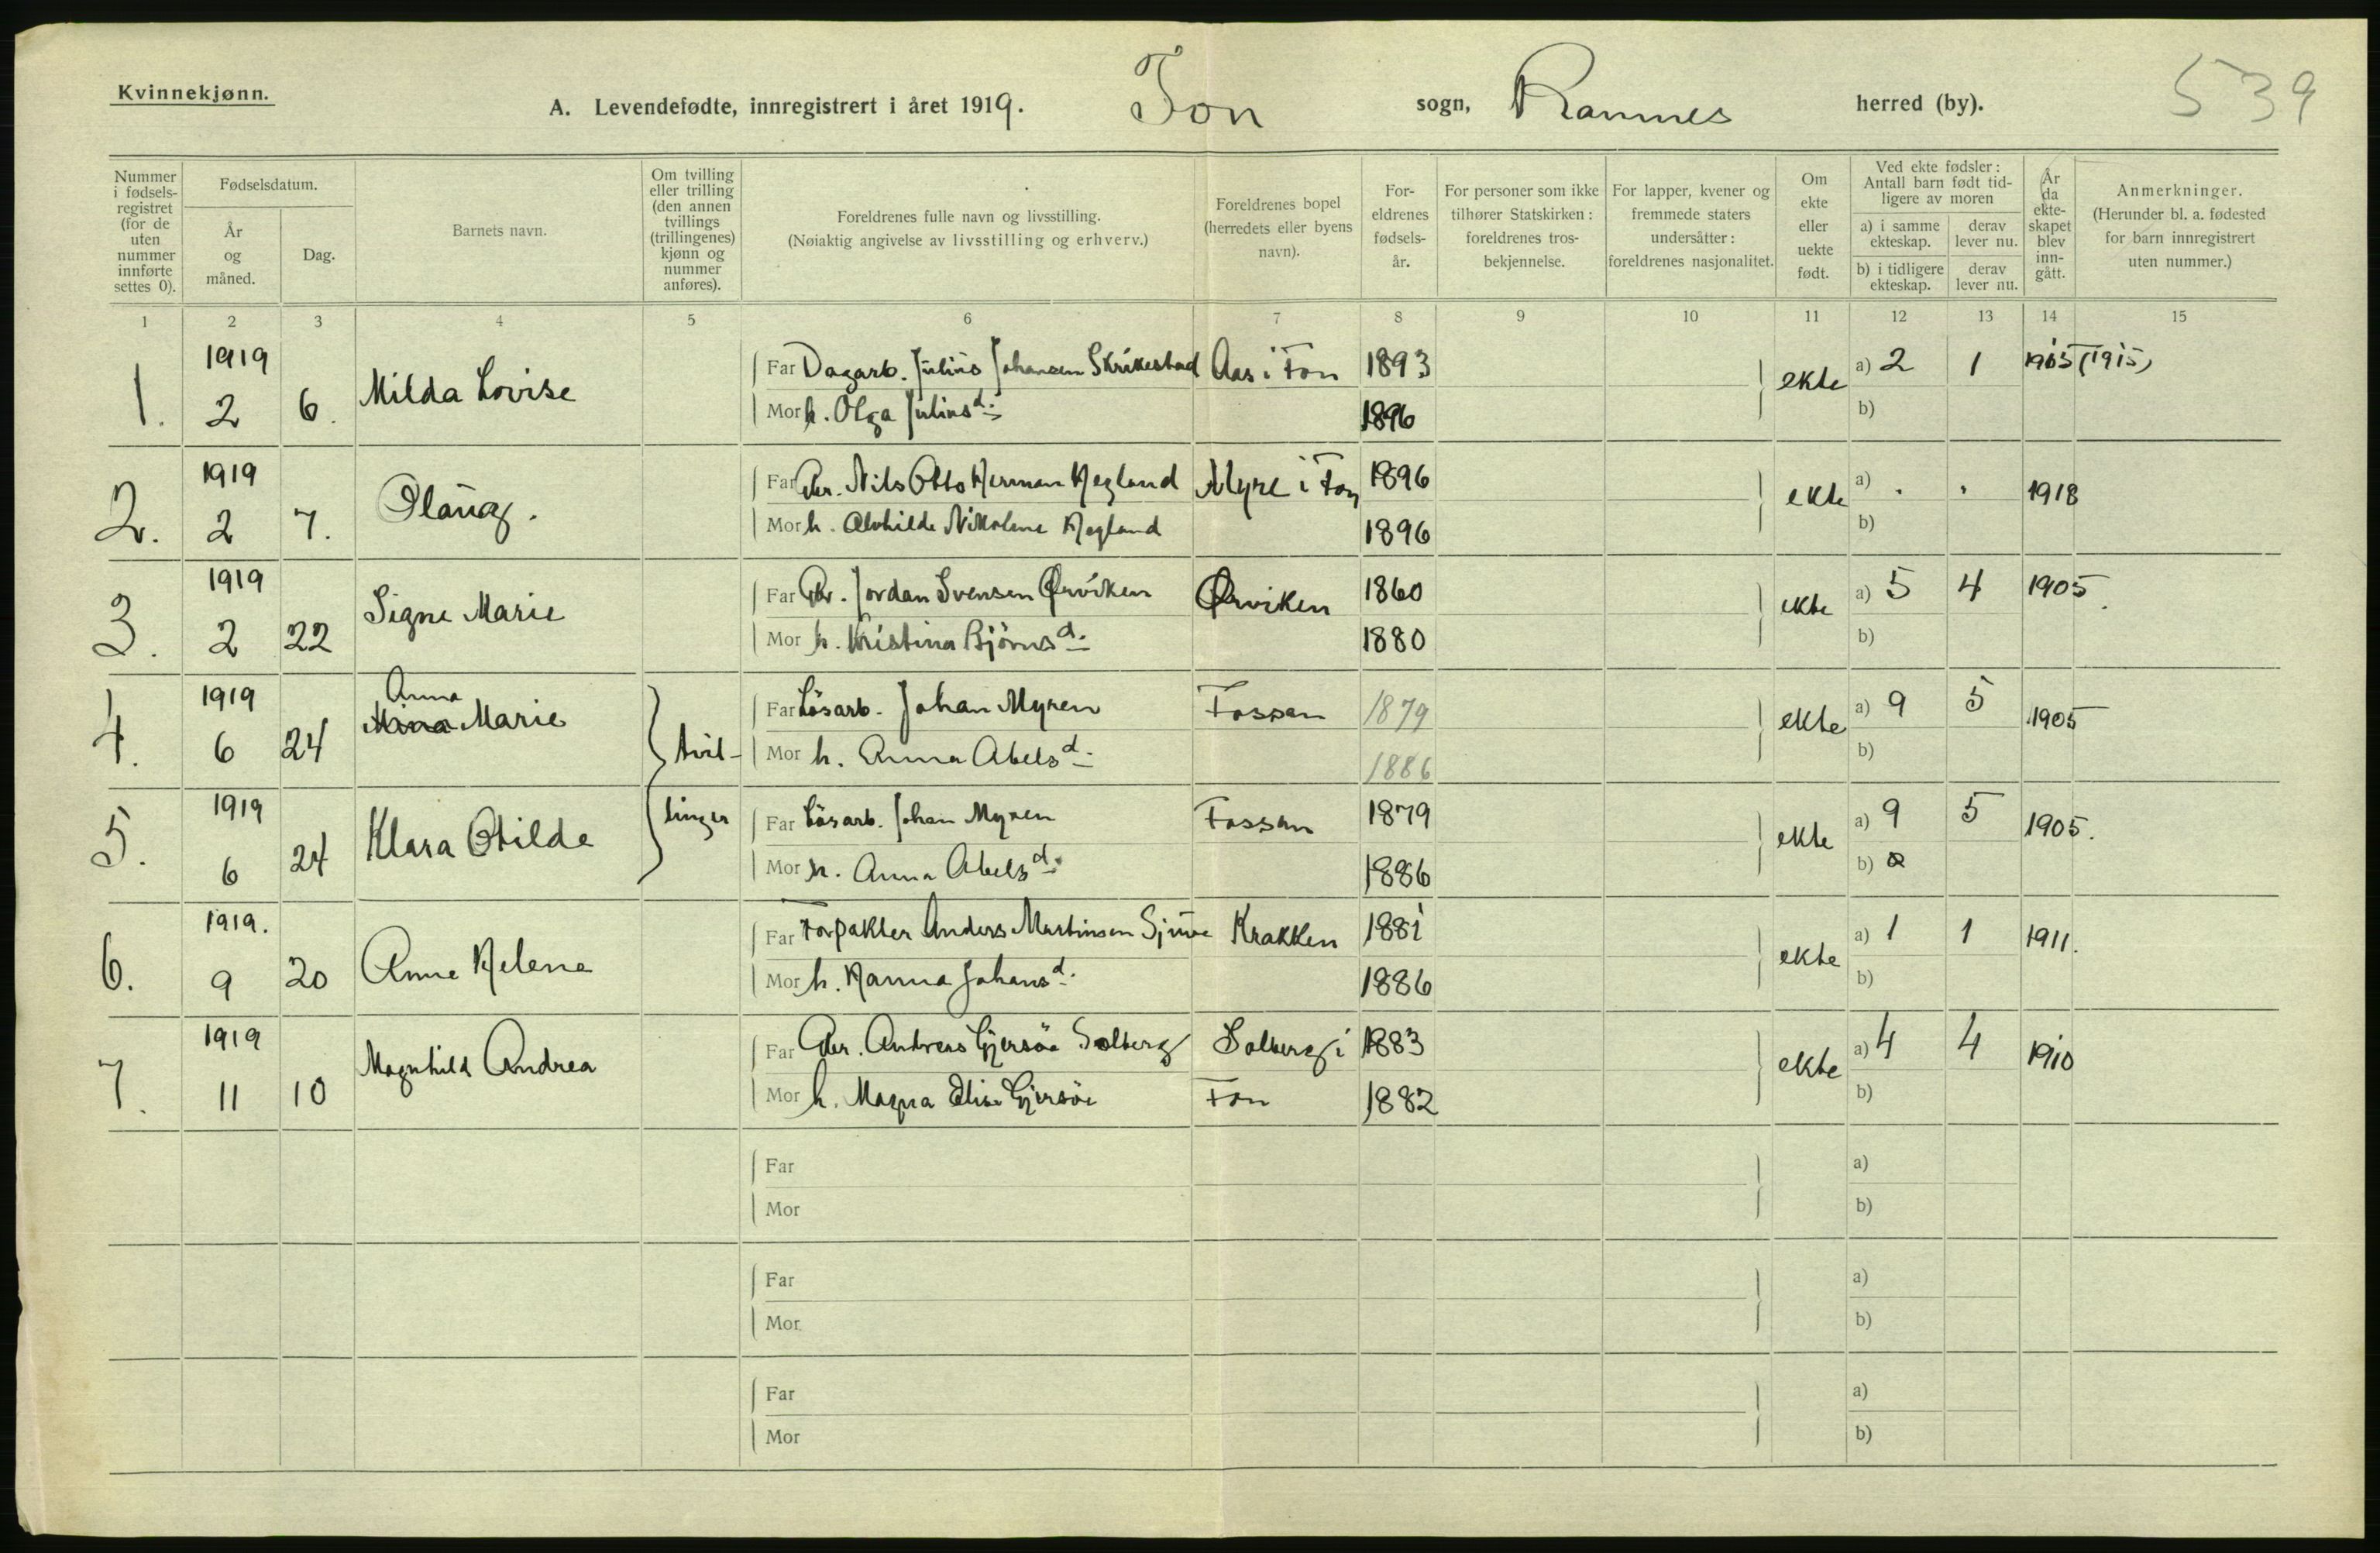 Kvinnekjønn.
A. Levendefødte, innregistrert i året 1919. Fon sogn, Ramnes herred (by). 539
Nummer i fødsels-registret (for de uten nummer innførte settes 0).
Fødselsdatum.
År og måned.
Dag.
Barnets navn.
Om tvilling eller trilling (den annen tvillings (trillingenes) kjønn og nummer anføres).
Foreldrenes fulle navn og livsstilling.
(Nøiaktig angivelse av livsstilling og erhverv.)
Foreldrenes bopel (herredets eller byens navn).
For-eldrenes fødsels-år.
For personer som ikke tilhører Statskirken: foreldrenes tros-bekjennelse.
For lapper, kvener og fremmede staters undersåtter: foreldrenes nasjonalitet.
Om ekte eller uekte født.
Ved ekte fødsler: Antall barn født tid-ligere av moren
a) i samme ekteskap.
derav lever nu.
b) i tidligere ekteskap.
derav lever nu.
År da ekte-skapet blev inn-gått.
Anmerkninger.
(Herunder bl. a. fødested for barn innregistrert uten nummer.)
1 2 3 4 5 6 7 8 9 10 11 12 13 14 15
1. 1919 2 6. Milda Lovise
Far Dagarb. Julius Johansen Skrikestad Aas i Fon 1893 ekte a) 2 1 1905 (1915)
Mor h. Olga Juliusd. 1896 b)
2. 1919 2 7. Olaug.
Far Gbr. Nils Otto Herman Hegland Myre i Fon 1896 ekte a) . . 1918
Mor h. Alvhilde Nikoline Hegland 1896 b)
3. 1919 2 22 Signe Marie
Far Gbr. Jordan Svensen Ørviken Ørviken 1860 ekte a) 5 4 1905.
Mor h. Kristina Björnsd. 1880 b)
4. 1919 6 24 Anna Marie tvil-
Far Lösarb. Johan Myren Fossan 1879 ekte a) 9 5 1905
Mor h. Anna Abelsd. 1886 b)
5. 1919 6 24 Klara Otilde linger
Far Lösarb. Johan Myren Fossan 1879 ekte a) 9 5 1905.
Mor h. Anna Abelsd. 1886 b)
6. 1919. 9 20 Anne Helene
Far Forpakter Anders Martinsen Sjue Krakken 1881 ekte a) 1 1 1911.
Mor h. Hanna Johansd. 1886 b)
7. 1919 11 10 Magnhild Andrea
Far Gbr. Andreas Gjersöe Solberg Solberg i 1883 ekte a) 4 4 1910
Mor h. Magna Elise Gjersöe Fon 1882 b)
Far a)
Mor b)
Far a)
Mor b)
Far a)
Mor b)